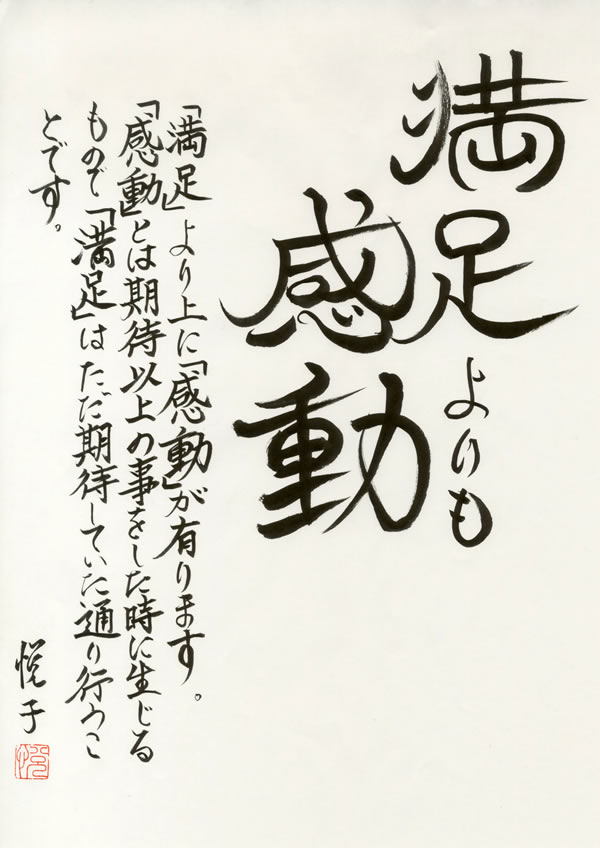 満足よりも
感動
「満足」より上に「感動」が有ります。
「感動」とは期待以上の事をした時に生じる
もので「満足」はただ期待していた通り行うこ
とです。
悦子